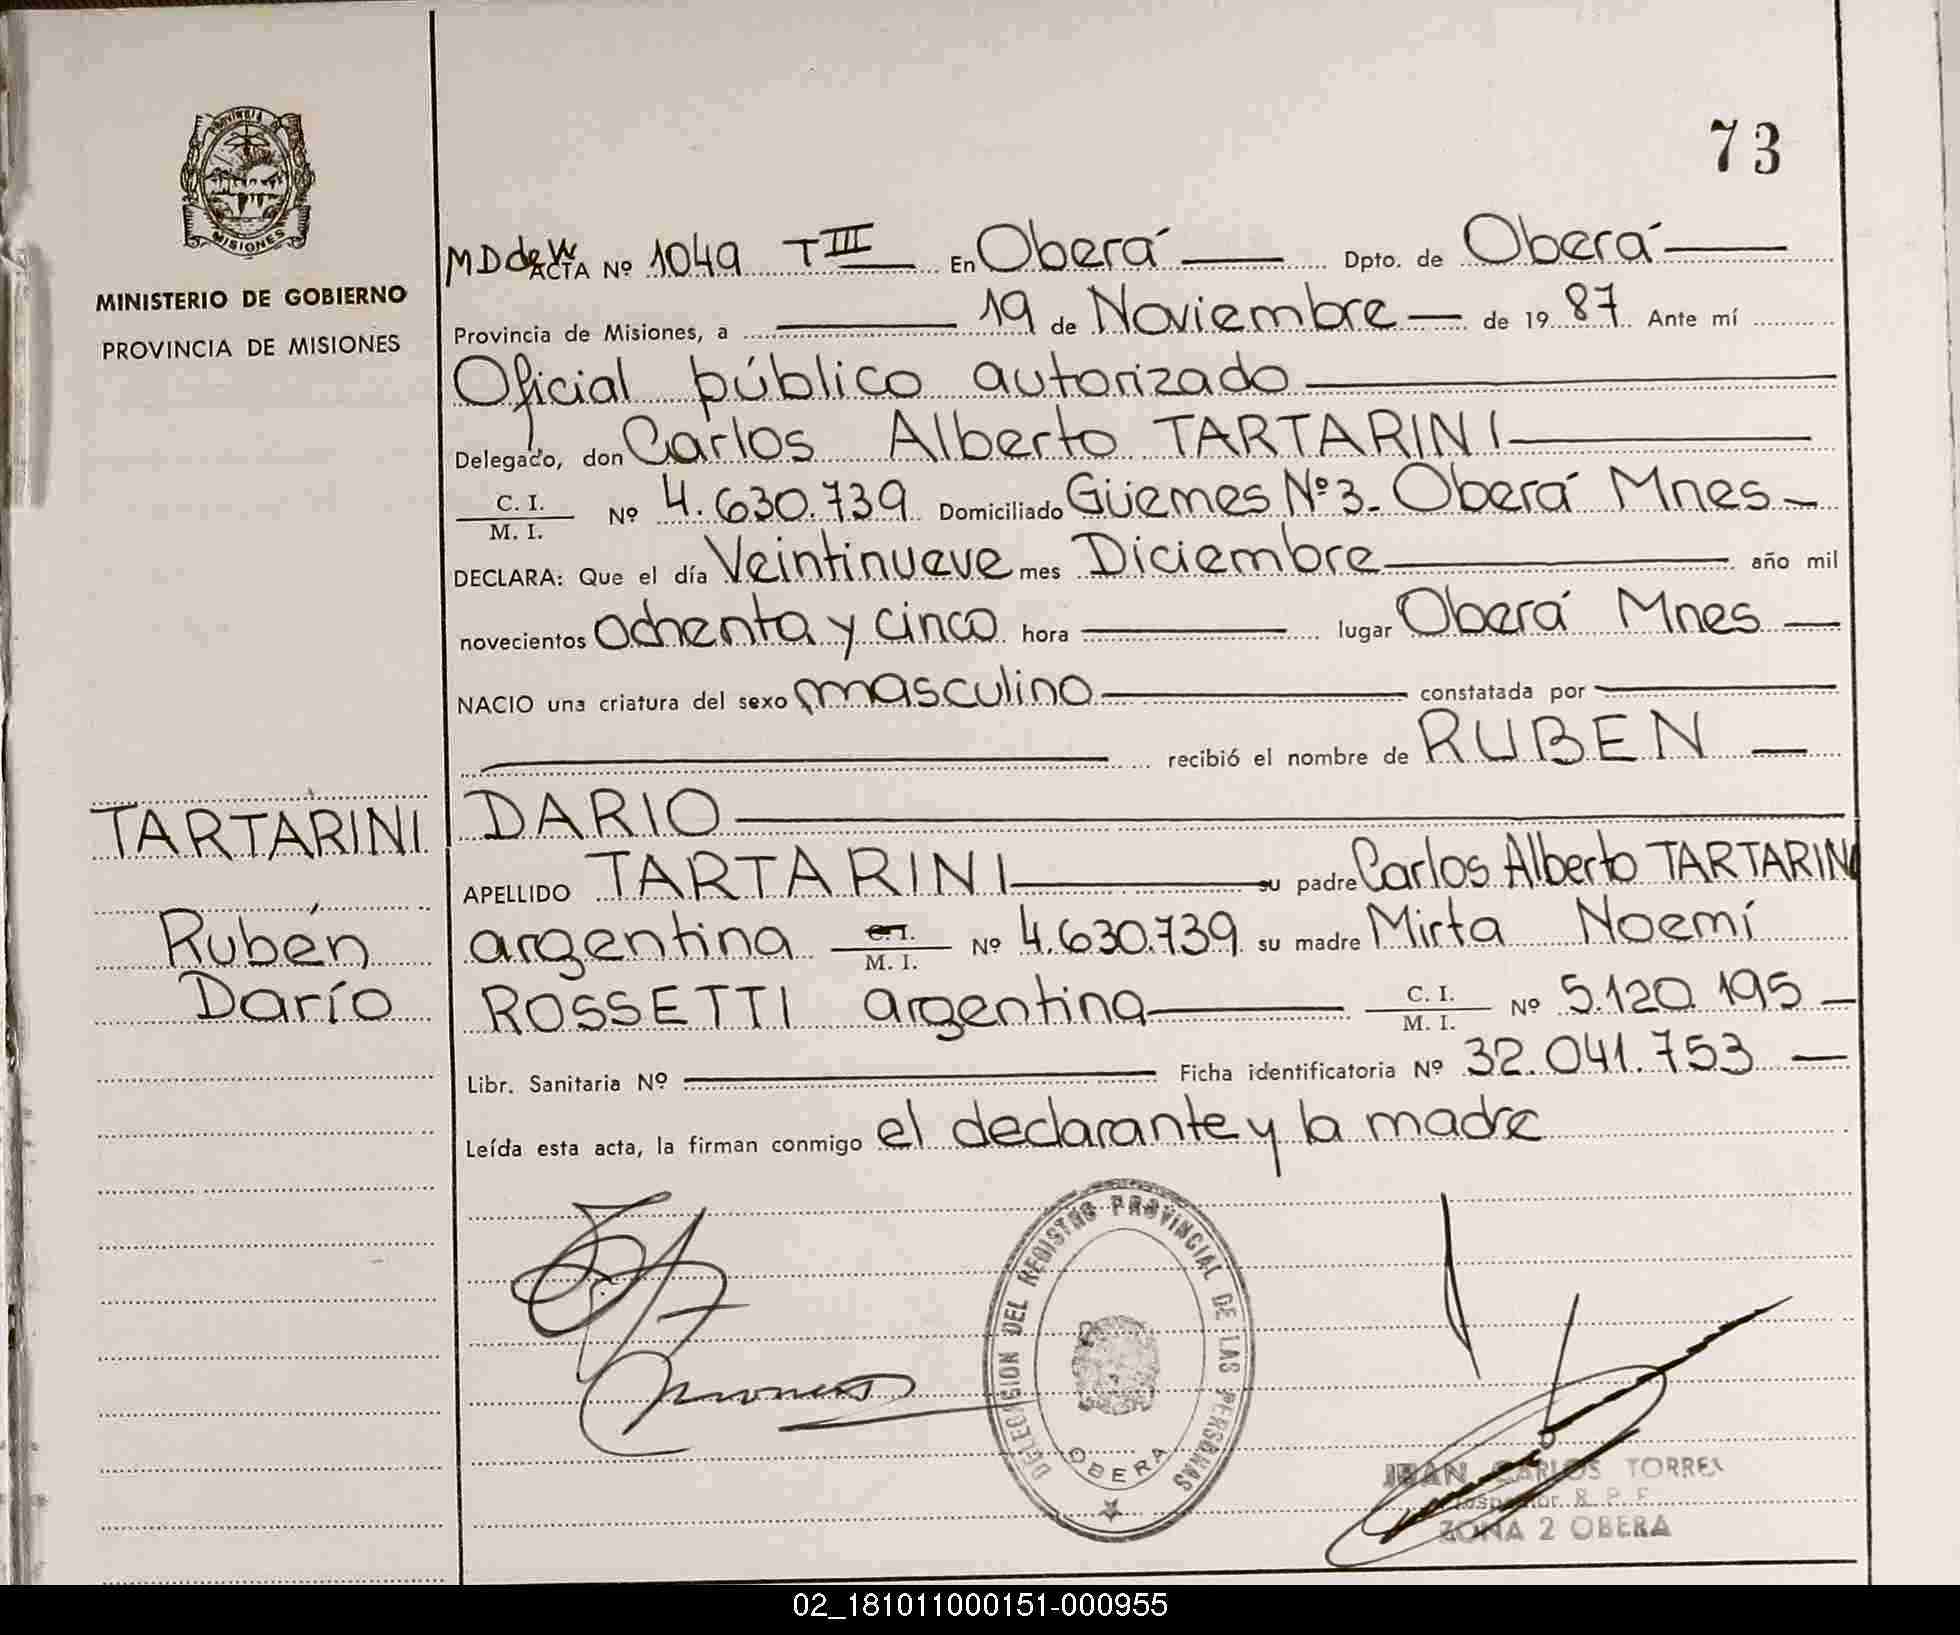 PROVINCIA
MISIONES
MINISTERIO DE GOBIERNO
PROVINCIA DE MISIONES
73
MD de W ACTA Nº 1049 TIII En Oberá Dpto. de Oberá
Provincia de Misiones, a 19 de Noviembre de 1987 Ante mí
Oficial público autorizado
Delegado, don Carlos Alberto TARTARINI
C. I.
M. I. Nº 4.630.739 Domiciliado Güemes Nº 3. Oberá Mnes
DECLARA: Que el día Veintinueve mes Diciembre año mil
novecientos ochenta y cinco hora lugar Oberá Mnes
NACIO una criatura del sexo masculino constatada por
recibió el nombre de RUBEN
DARIO
APELLIDO TARTARINI su padre Carlos Alberto TARTARINI
argentina C. I. M. I. Nº 4.630.739 su madre Mirta Noemí
ROSSETTI argentina C. I. M. I. Nº 5.120.195
Libr. Sanitaria Nº Ficha identificatoria Nº 32.041.753
Leída esta acta, la firman conmigo el declarante y la madre
TARTARINI
Rubén
Darío
DELEGACION DEL REGISTRO PROVINCIAL DE LAS PERSONAS
OBERA
JUAN CARLOS TORRES
ZONA 2 OBERA
02_181011000151-000955